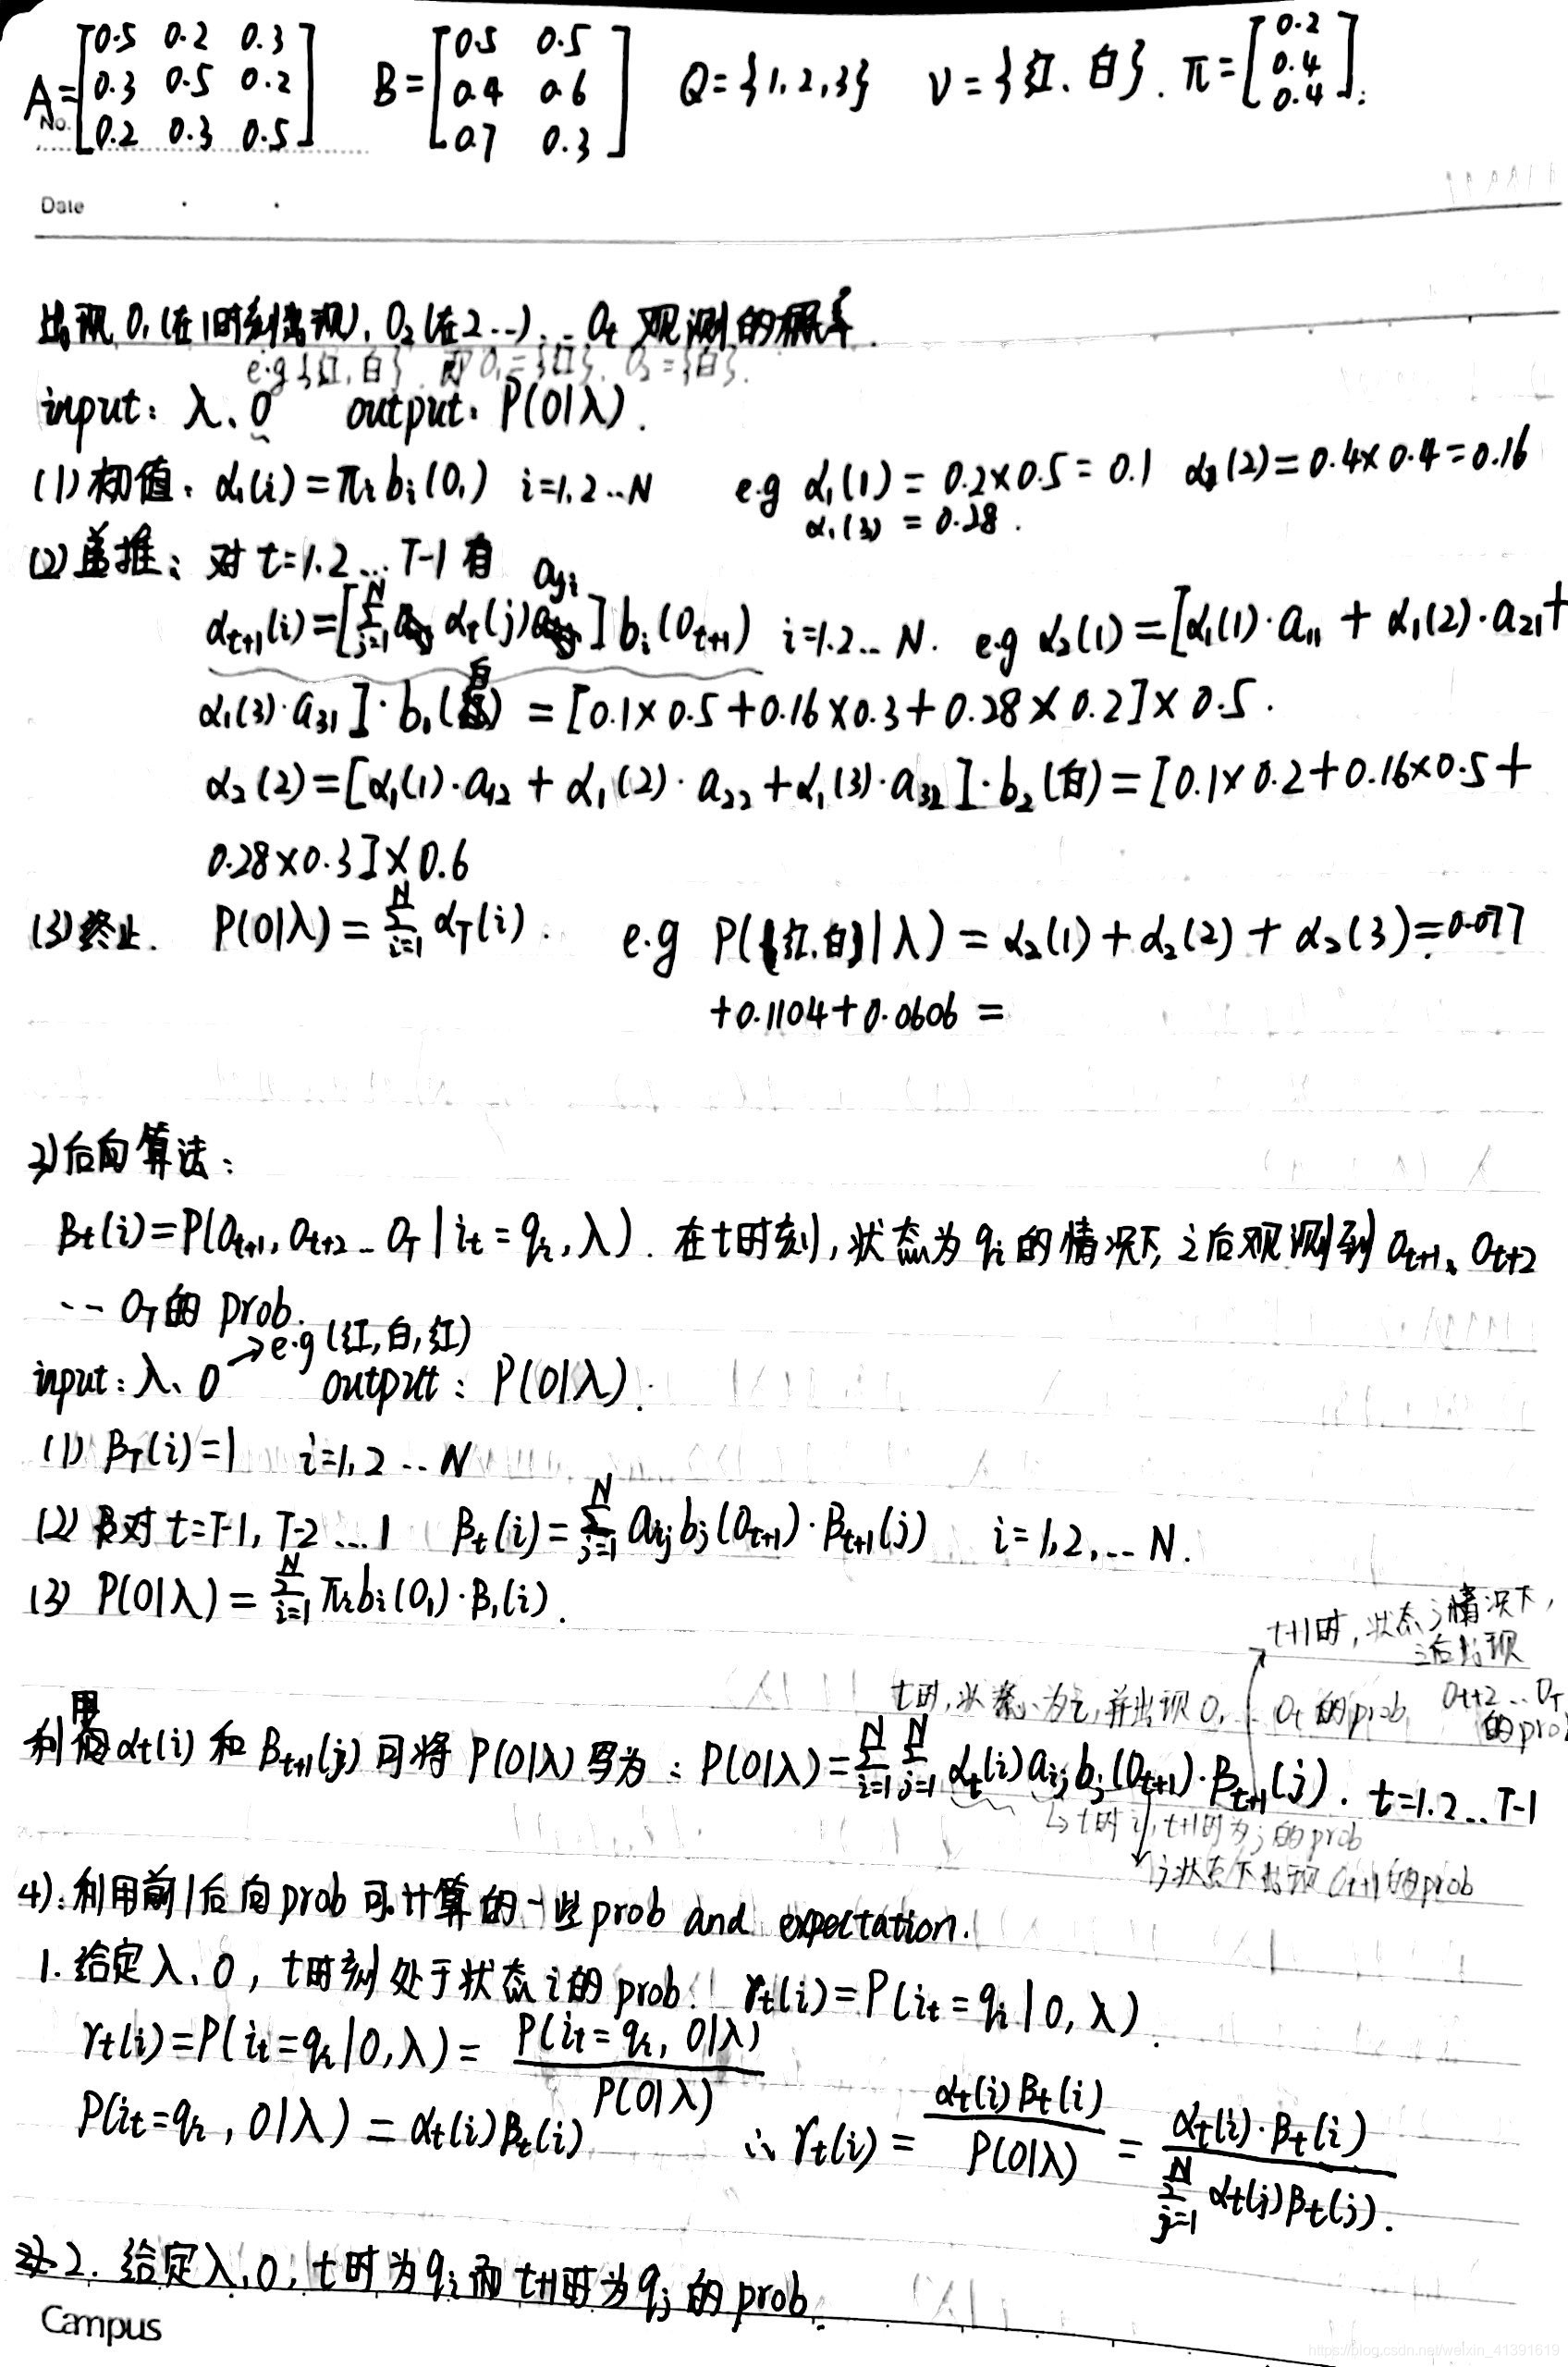 A=[0.5 0.2 0.3
0.3 0.5 0.2
0.2 0.3 0.5] B=[0.5 0.5
0.4 0.6
0.7 0.3] Q={1,2,3} V={红、白}. π=[0.2
0.4
0.4].
No.
Date
出现O₁(在1时刻出现), O₂(在2…)、… Oₜ 观测的概率.
e.g {红,白} 即O₁={红}, O₂={白}.
input: λ、O output: P(O|λ).
(1)初值: α₁(i)=πᵢbᵢ(O₁) i=1,2…N e.g α₁(1)=0.2×0.5=0.1 α₁(2)=0.4×0.4=0.16
α₁(3)=0.28.
(2)递推: 对t=1.2…T-1有
αₜ₊₁(i)=[Σⱼ₌₁ᴺ αₜ(j)aⱼᵢ]bᵢ(Oₜ₊₁) i=1.2…N. e.g α₂(1)=[α₁(1)·a₁₁+α₁(2)·a₂₁+
α₁(3)·a₃₁]·b₁(白)=[0.1×0.5+0.16×0.3+0.28×0.2]×0.5.
α₂(2)=[α₁(1)·a₁₂+α₁(2)·a₂₂+α₁(3)·a₃₂]·b₂(白)=[0.1×0.2+0.16×0.5+
0.28×0.3]×0.6
(3)终止. P(O|λ)=Σᵢ₌₁ᴺ α_T(i). e.g P({红,白}|λ)=α₂(1)+α₂(2)+α₂(3)=0.077
+0.1104+0.0606=
3)后向算法:
βₜ(i)=P(Oₜ₊₁,Oₜ₊₂…O_T|iₜ=qᵢ,λ). 在t时刻,状态为qᵢ的情况下,之后观测到Oₜ₊₁、Oₜ₊₂
…O_T的prob.
→e.g(红,白,红)
input:λ、O output: P(O|λ).
(1) β_T(i)=1 i=1,2…N
(2) 对t=T-1,T-2…1 βₜ(i)=Σⱼ₌₁ᴺ aᵢⱼbⱼ(Oₜ₊₁)·βₜ₊₁(j) i=1,2,…N.
(3) P(O|λ)=Σᵢ₌₁ᴺ πᵢbᵢ(O₁)·β₁(i).
t+1时,状态j情况下,
之后出现
Oₜ₊₂…O_T
的prob
t时,状态为i,并出现O₁…Oₜ的prob
利用αₜ(i)和βₜ₊₁(j)可将P(O|λ)写为: P(O|λ)=Σᵢ₌₁ᴺΣⱼ₌₁ᴺ αₜ(i)aᵢⱼbⱼ(Oₜ₊₁)·βₜ₊₁(j). t=1.2…T-1
↳t时i,t+1时为j的prob
j状态下出现Oₜ₊₁的prob
4):利用前|后向prob可计算的一些prob and expectation.
1. 给定λ、O,t时刻处于状态i的prob. γₜ(i)=P(iₜ=qᵢ|O,λ).
γₜ(i)=P(iₜ=qᵢ|O,λ)=P(iₜ=qᵢ,O|λ)/P(O|λ)
P(iₜ=qᵢ,O|λ)=αₜ(i)βₜ(i) ∴γₜ(i)=αₜ(i)βₜ(i)/P(O|λ)=αₜ(i)·βₜ(i)/Σⱼ₌₁ᴺ αₜ(j)βₜ(j).
2. 给定λ,O,t时为qᵢ而t+1时为qⱼ的prob.
Campus
https://blog.csdn.net/weixin_41391619